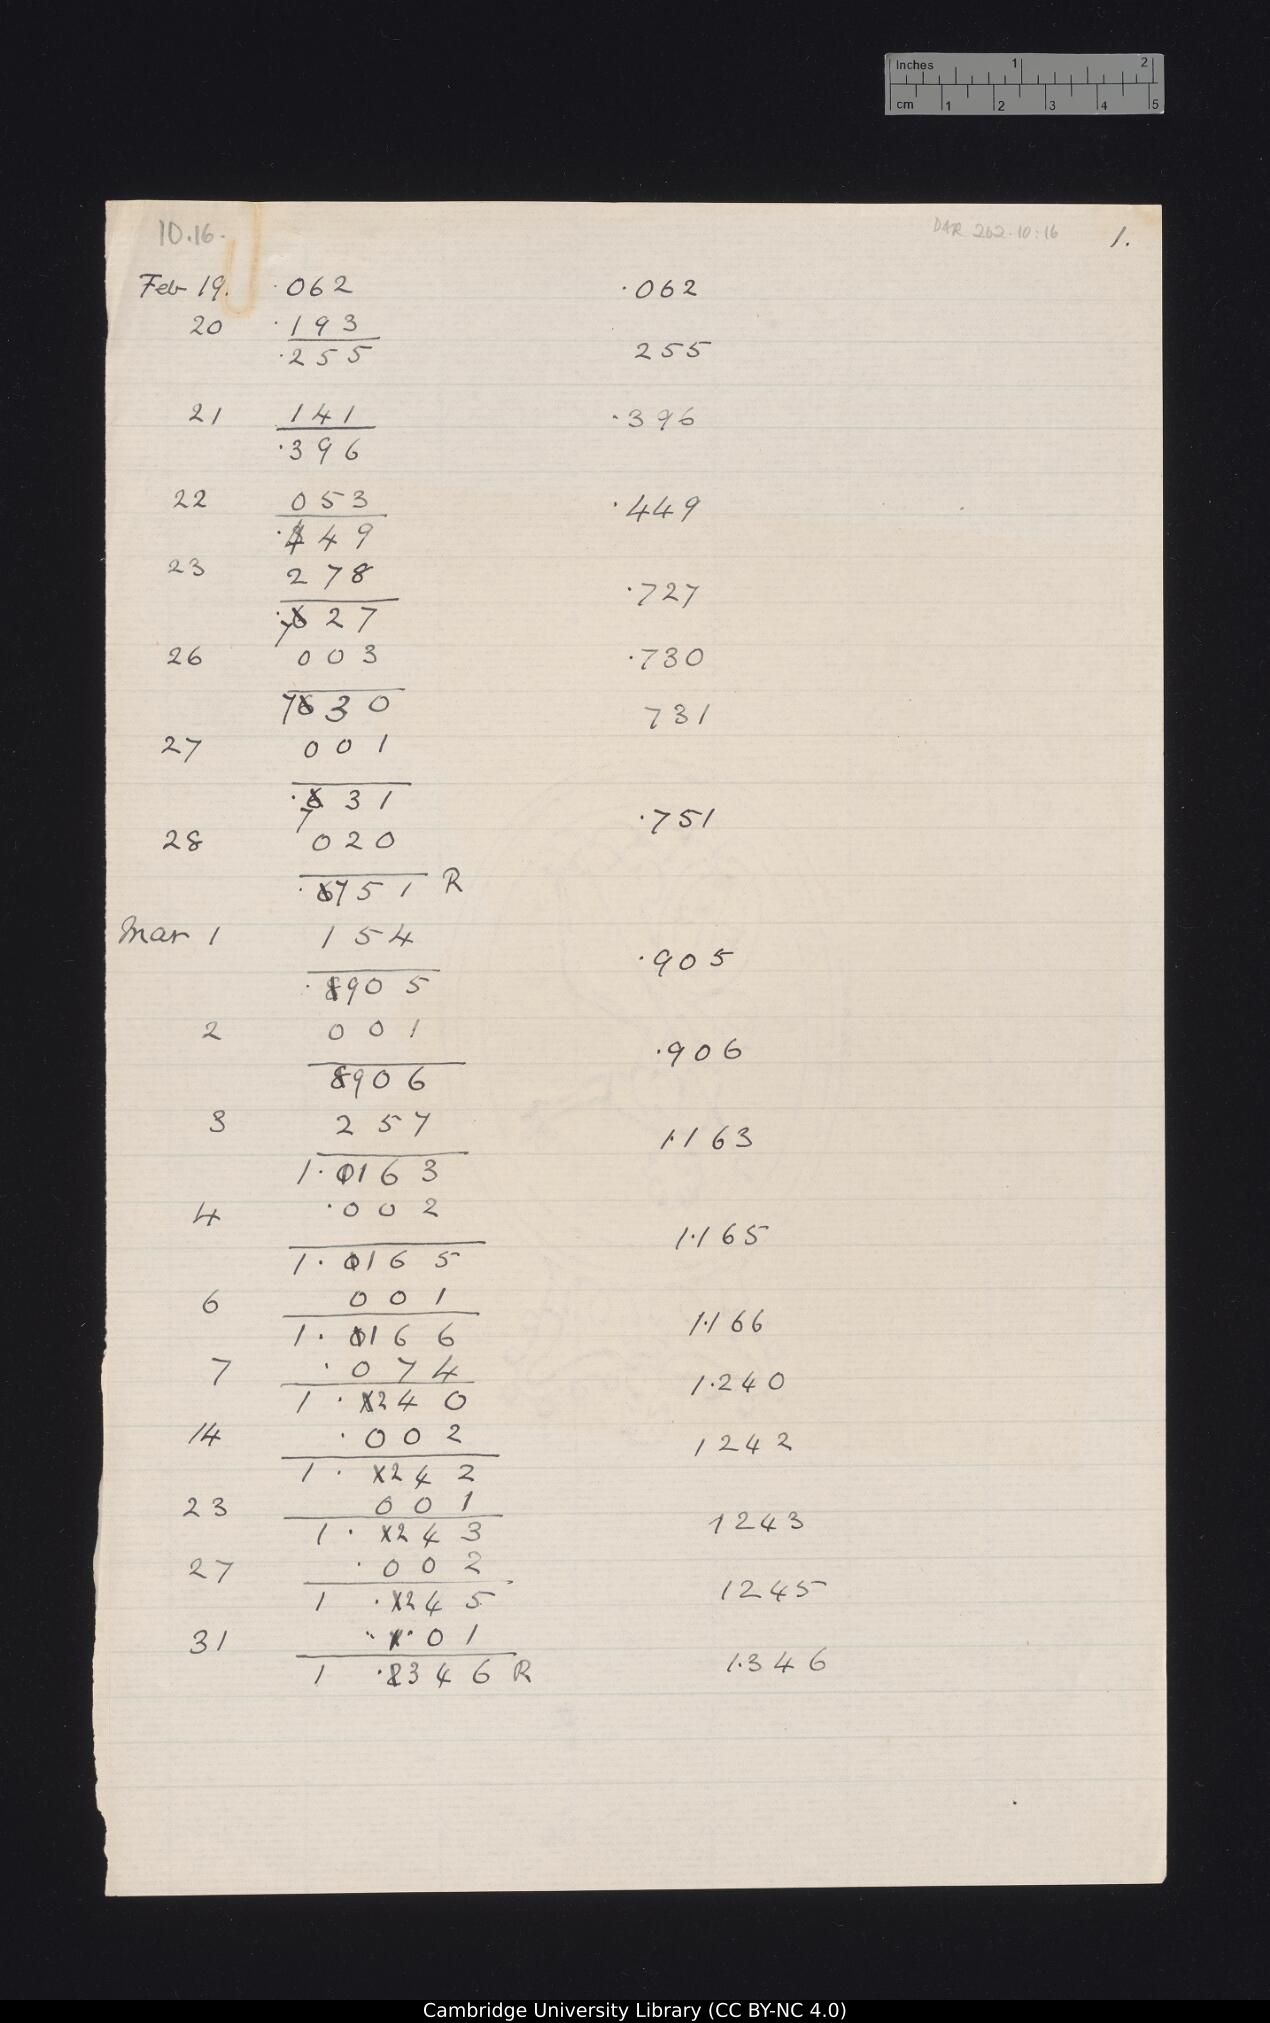 Inches 1 2
cm 1 2 3 4 5
10.16.
DAR 262.10:16
1.
Feb 19. .062 .062
20 .193
.255 255
21 141 .396
.396
22 053 .449
.449
23 278 .727
.727
26 003 .730
730 731
27 001
.731 .751
28 020
.751 R
Mar 1 154 .905
.905
2 001 .906
906
3 257 1.163
1.163
4 .002 1.165
1.165
6 001 1.166
1.166
7 .074 1.240
1.240
14 .002 1242
1.242
23 001 1243
1.243
27 .002 1245
1.245
31 .01 1.346
1.346 R
Cambridge University Library (CC BY-NC 4.0)